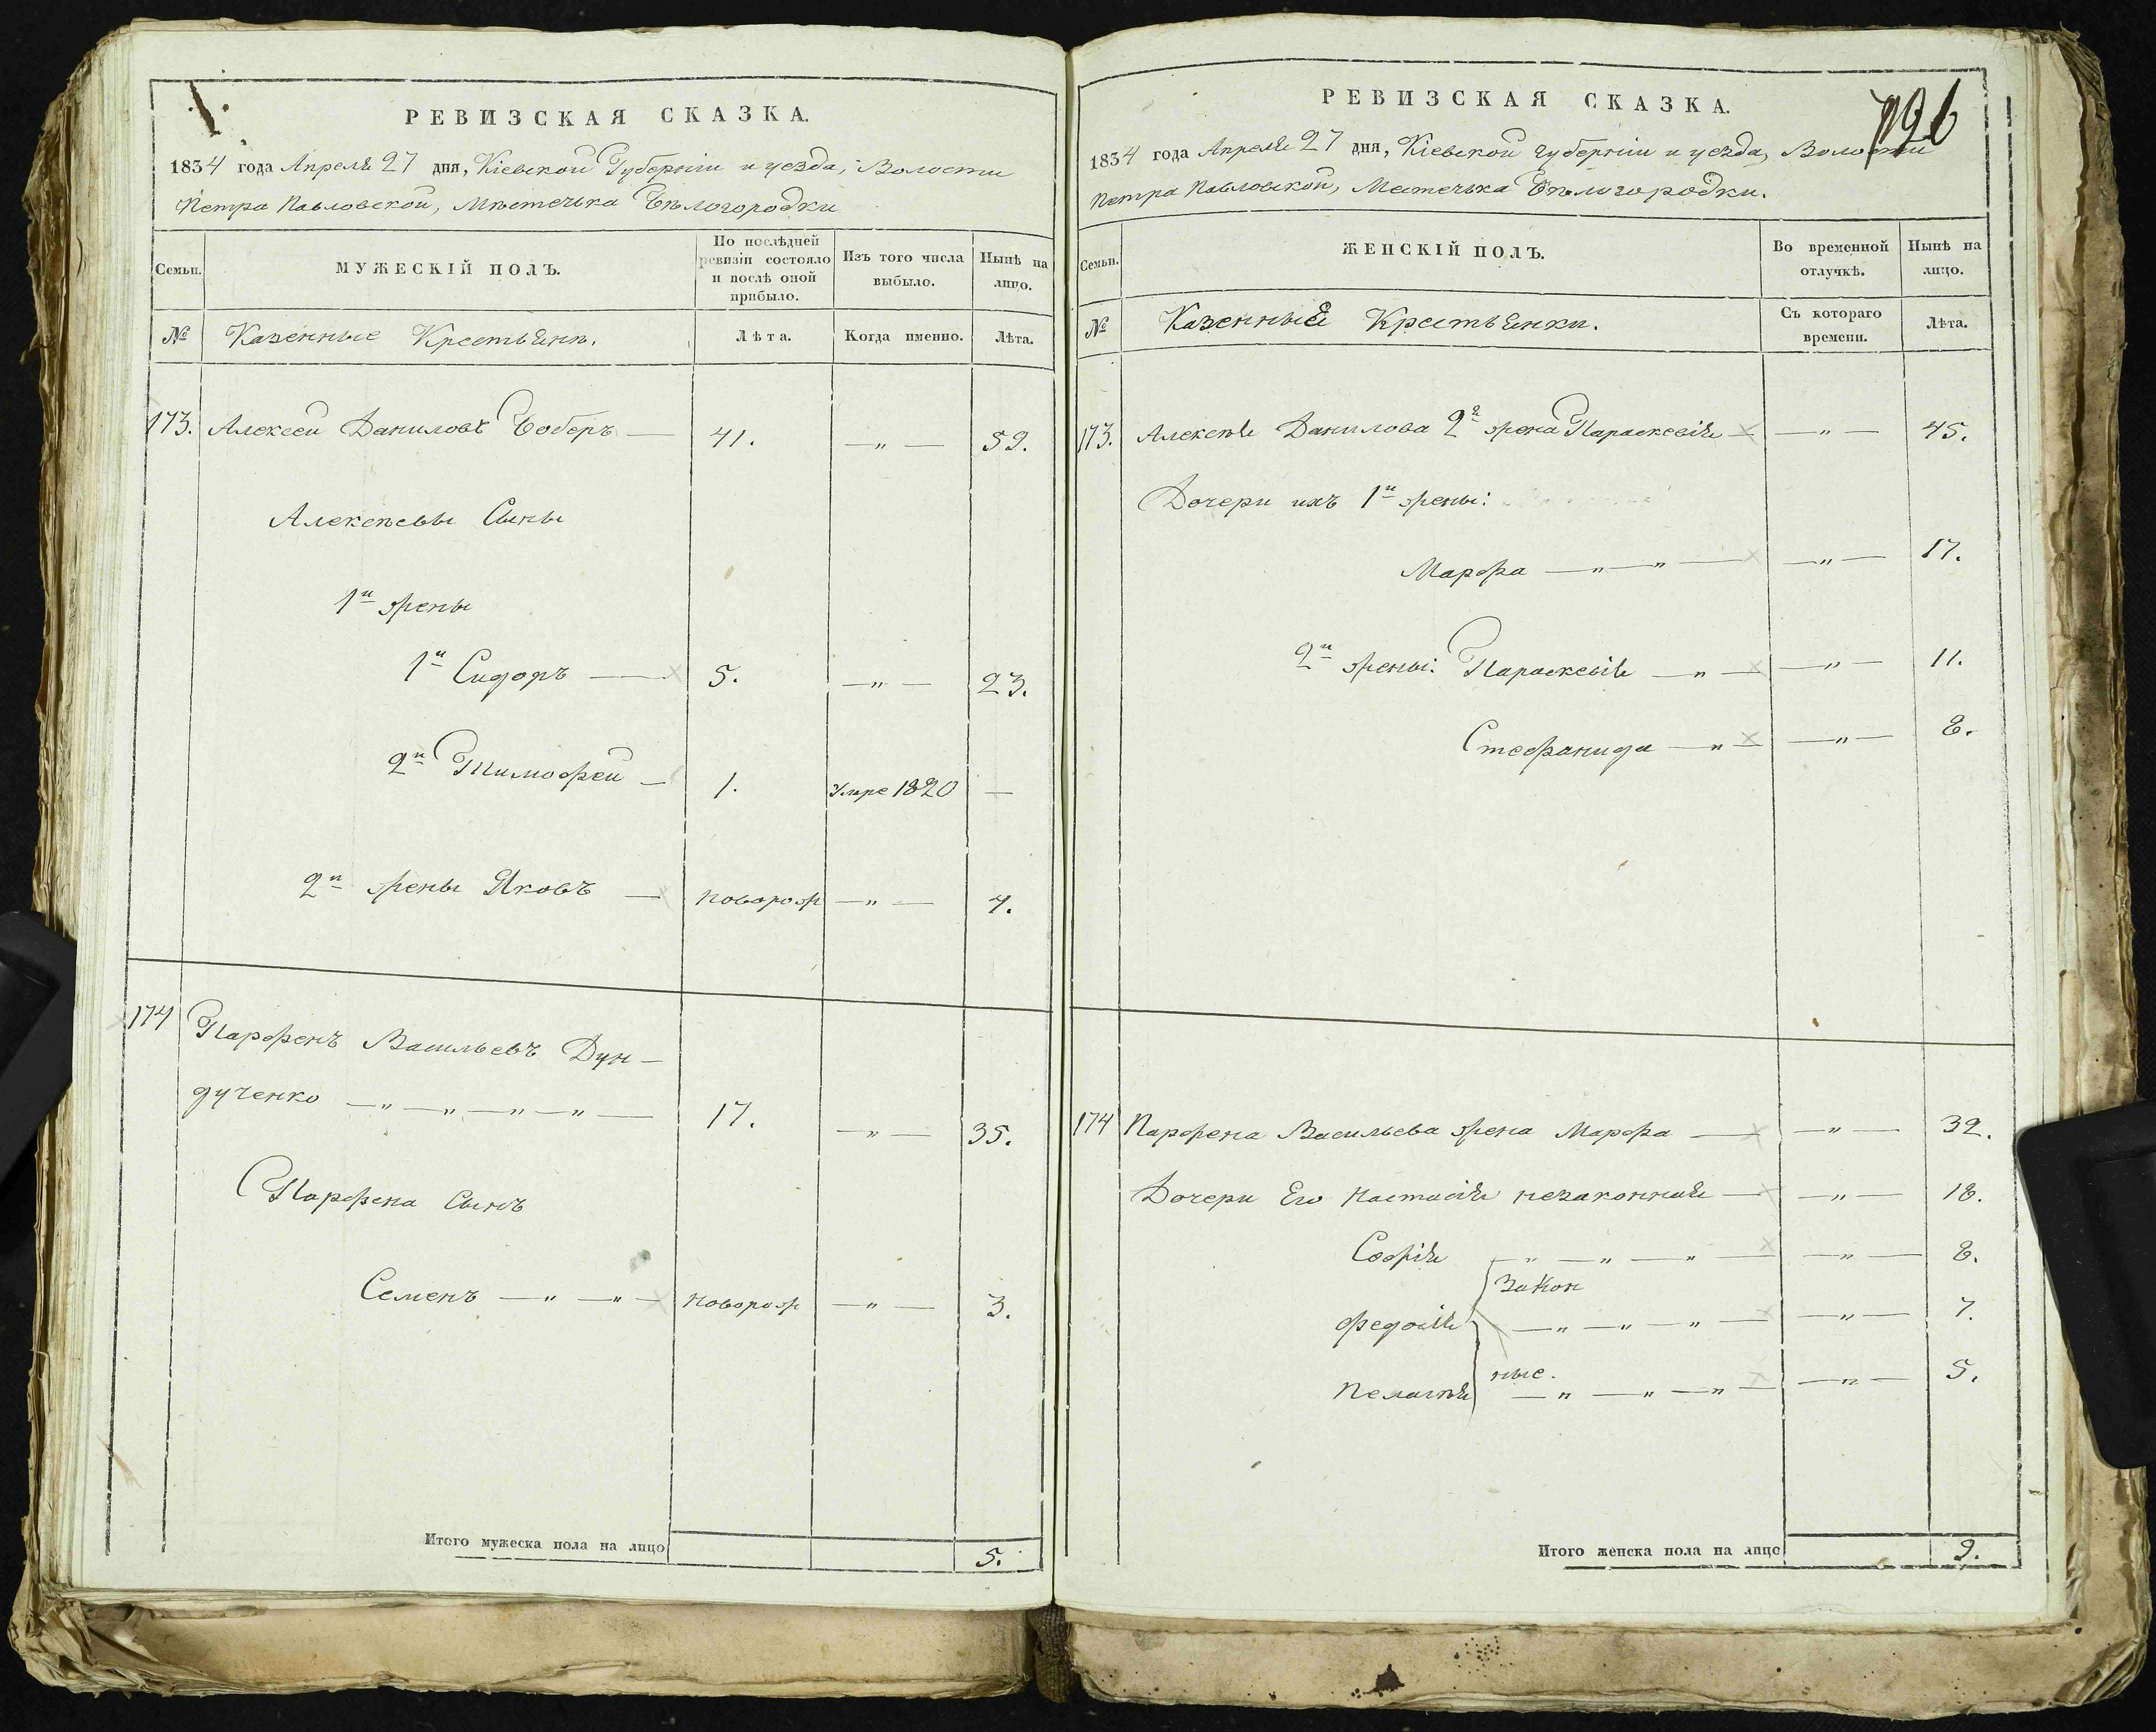 РЕВИЗСКАЯ СКАЗКА.
1834 года Апреля 27 дня, Кіевской Губерніи и уезда, Волости
Петра Павловской, Мѣстечка Бѣлогородки
Семьи.
МУЖЕСКІЙ ПОЛЪ.
По послѣдней ревизіи состояло и послѣ оной прибыло.
Изъ того числа выбыло.
Нынѣ на лицо.
№ Казенные Крестьяне. Лѣта. Когда именно. Лѣта.
173. Алексей Даниловъ Боберъ — 41. — „ — 59.
Алексѣевы Сыны
1й жены
1й Сидоръ — 5. — „ — 23.
2й Тимофей — 1. Умре 1820 —
2й жены Яковъ — новорож — „ — 7.
174 Парфенъ Васильевъ Дун-
дученко — „ — „ — „ — „ — 17. — „ — 35.
Парфена Сынъ
Семенъ — „ — „ — новорож — „ — 3.
Итого мужеска пола на лицо 5.
РЕВИЗСКАЯ СКАЗКА.
1834 года Апреля 27 дня, Кіевской губерніи и уезда, Волости
Петра Павловской, Местечка Бѣлогородки.
Семьи.
ЖЕНСКІЙ ПОЛЪ.
Во временной отлучкѣ.
Нынѣ на лицо.
№ Казенные Крестьянки. Съ котораго времени. Лѣта.
173. Алексѣя Данилова 2я жена Параскевія — — „ — 45.
Дочери ихъ 1й жены:
Марфа — „ — „ — — „ — 17.
2й жены: Параскевія — „ — — „ — 11.
Стефанида — „ — — „ — 8.
174 Парфена Васильева жена Марфа — — „ — 32.
Дочери Его Настасія незаконная — — „ — 18.
Софія — „ — „ — „ — — „ — 8.
Закон
Федосія — „ — „ — „ — — „ — 7.
ные.
Пелагѣя — „ — „ — „ — — „ — 5.
Итого женска пола на лицо 9.